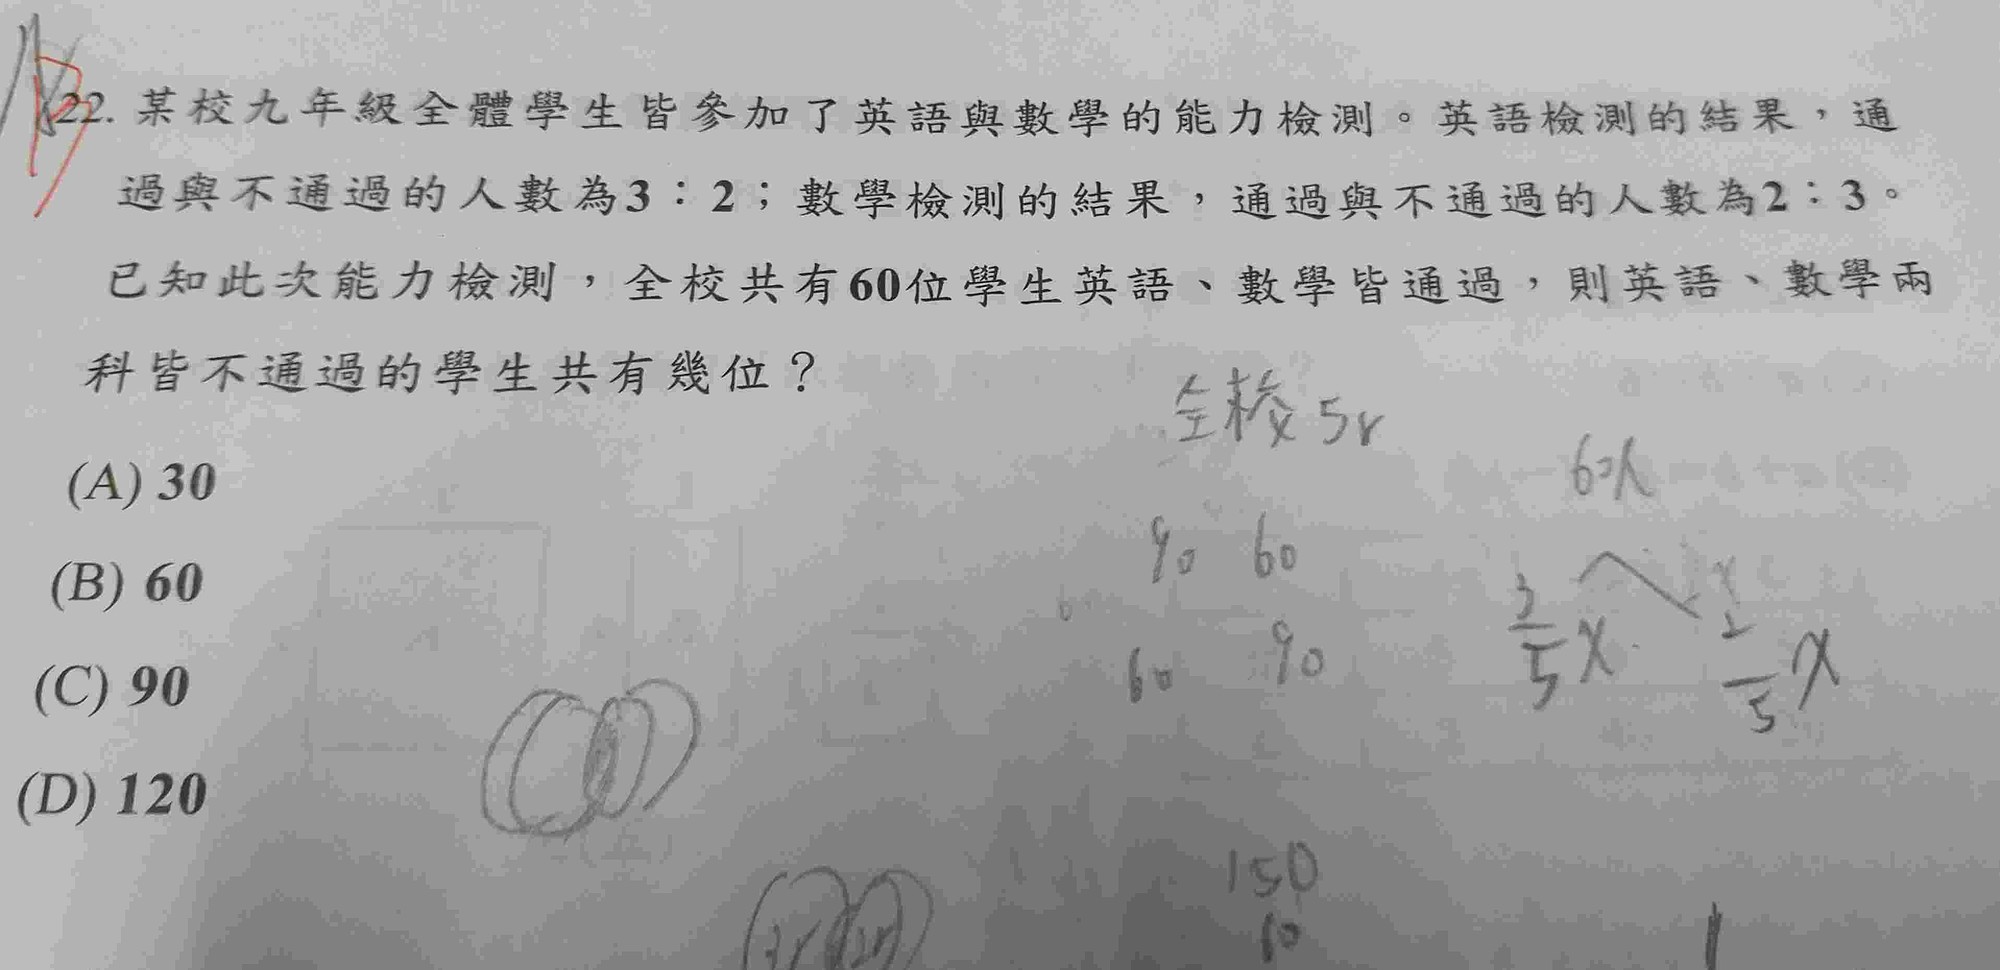 B
22. 某校九年級全體學生皆參加了英語與數學的能力檢測。英語檢測的結果，通
過與不通過的人數為3：2；數學檢測的結果，通過與不通過的人數為2：3。
已知此次能力檢測，全校共有60位學生英語、數學皆通過，則英語、數學兩
科皆不通過的學生共有幾位？
全校 5r
(A) 30
60人
90 60
(B) 60
60 90
3/5 x 2/5 x
(C) 90
(D) 120
150
3r 2r